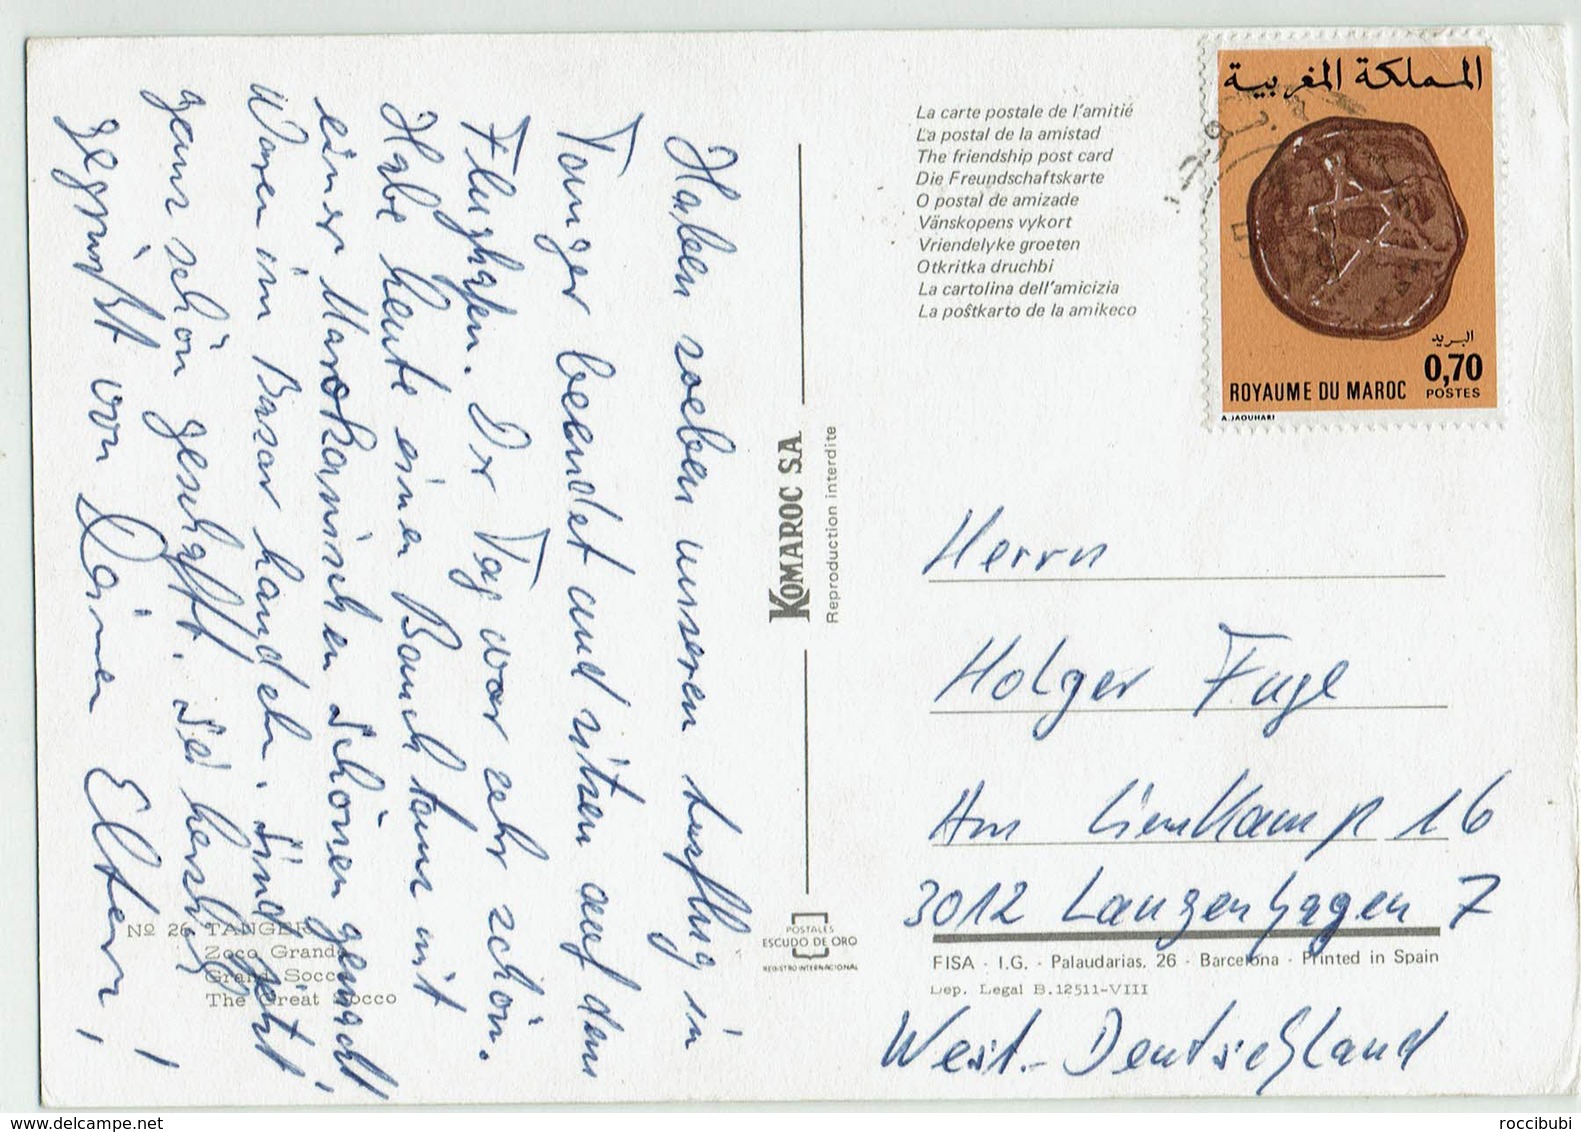 Haben soeben unseren Ausflug in
Tanger beendet und sitzen auf dem
Flughafen. Dr Tag war sehr schön.
Habe heute einen Bauchtanz mit
einer Marokanischen Schönen gemacht
Waren im Basar handeln, sind jetzt
ganz schön geschafft. Sei herzlich
gegrüßt von Deinen Eltern!
Nº 26 TANGER
Zoco Grande
Grand Socco
The Great Socco
KOMAROC S.A.
Reproduction interdite
POSTALES
ESCUDO DE ORO
REGISTRO INTERNACIONAL
La carte postale de l'amitié
La postal de la amistad
The friendship post card
Die Freundschaftskarte
O postal de amizade
Vänskopens vykort
Vriendelyke groeten
Otkritka druchbi
La cartolina dell'amicizia
La poŝtkarto de la amikeco
المملكة المغربية
البريد
0,70
ROYAUME DU MAROC POSTES
A.JAOUHARI
Herrn
Holger Fuge
Am Lienkamp 16
3012 Langenhagen 7
FISA - I.G. - Palaudarias, 26 - Barcelona - Printed in Spain
Dep. Legal B.12511-VIII
West-Deutschland
delcampe.net
roccibubi